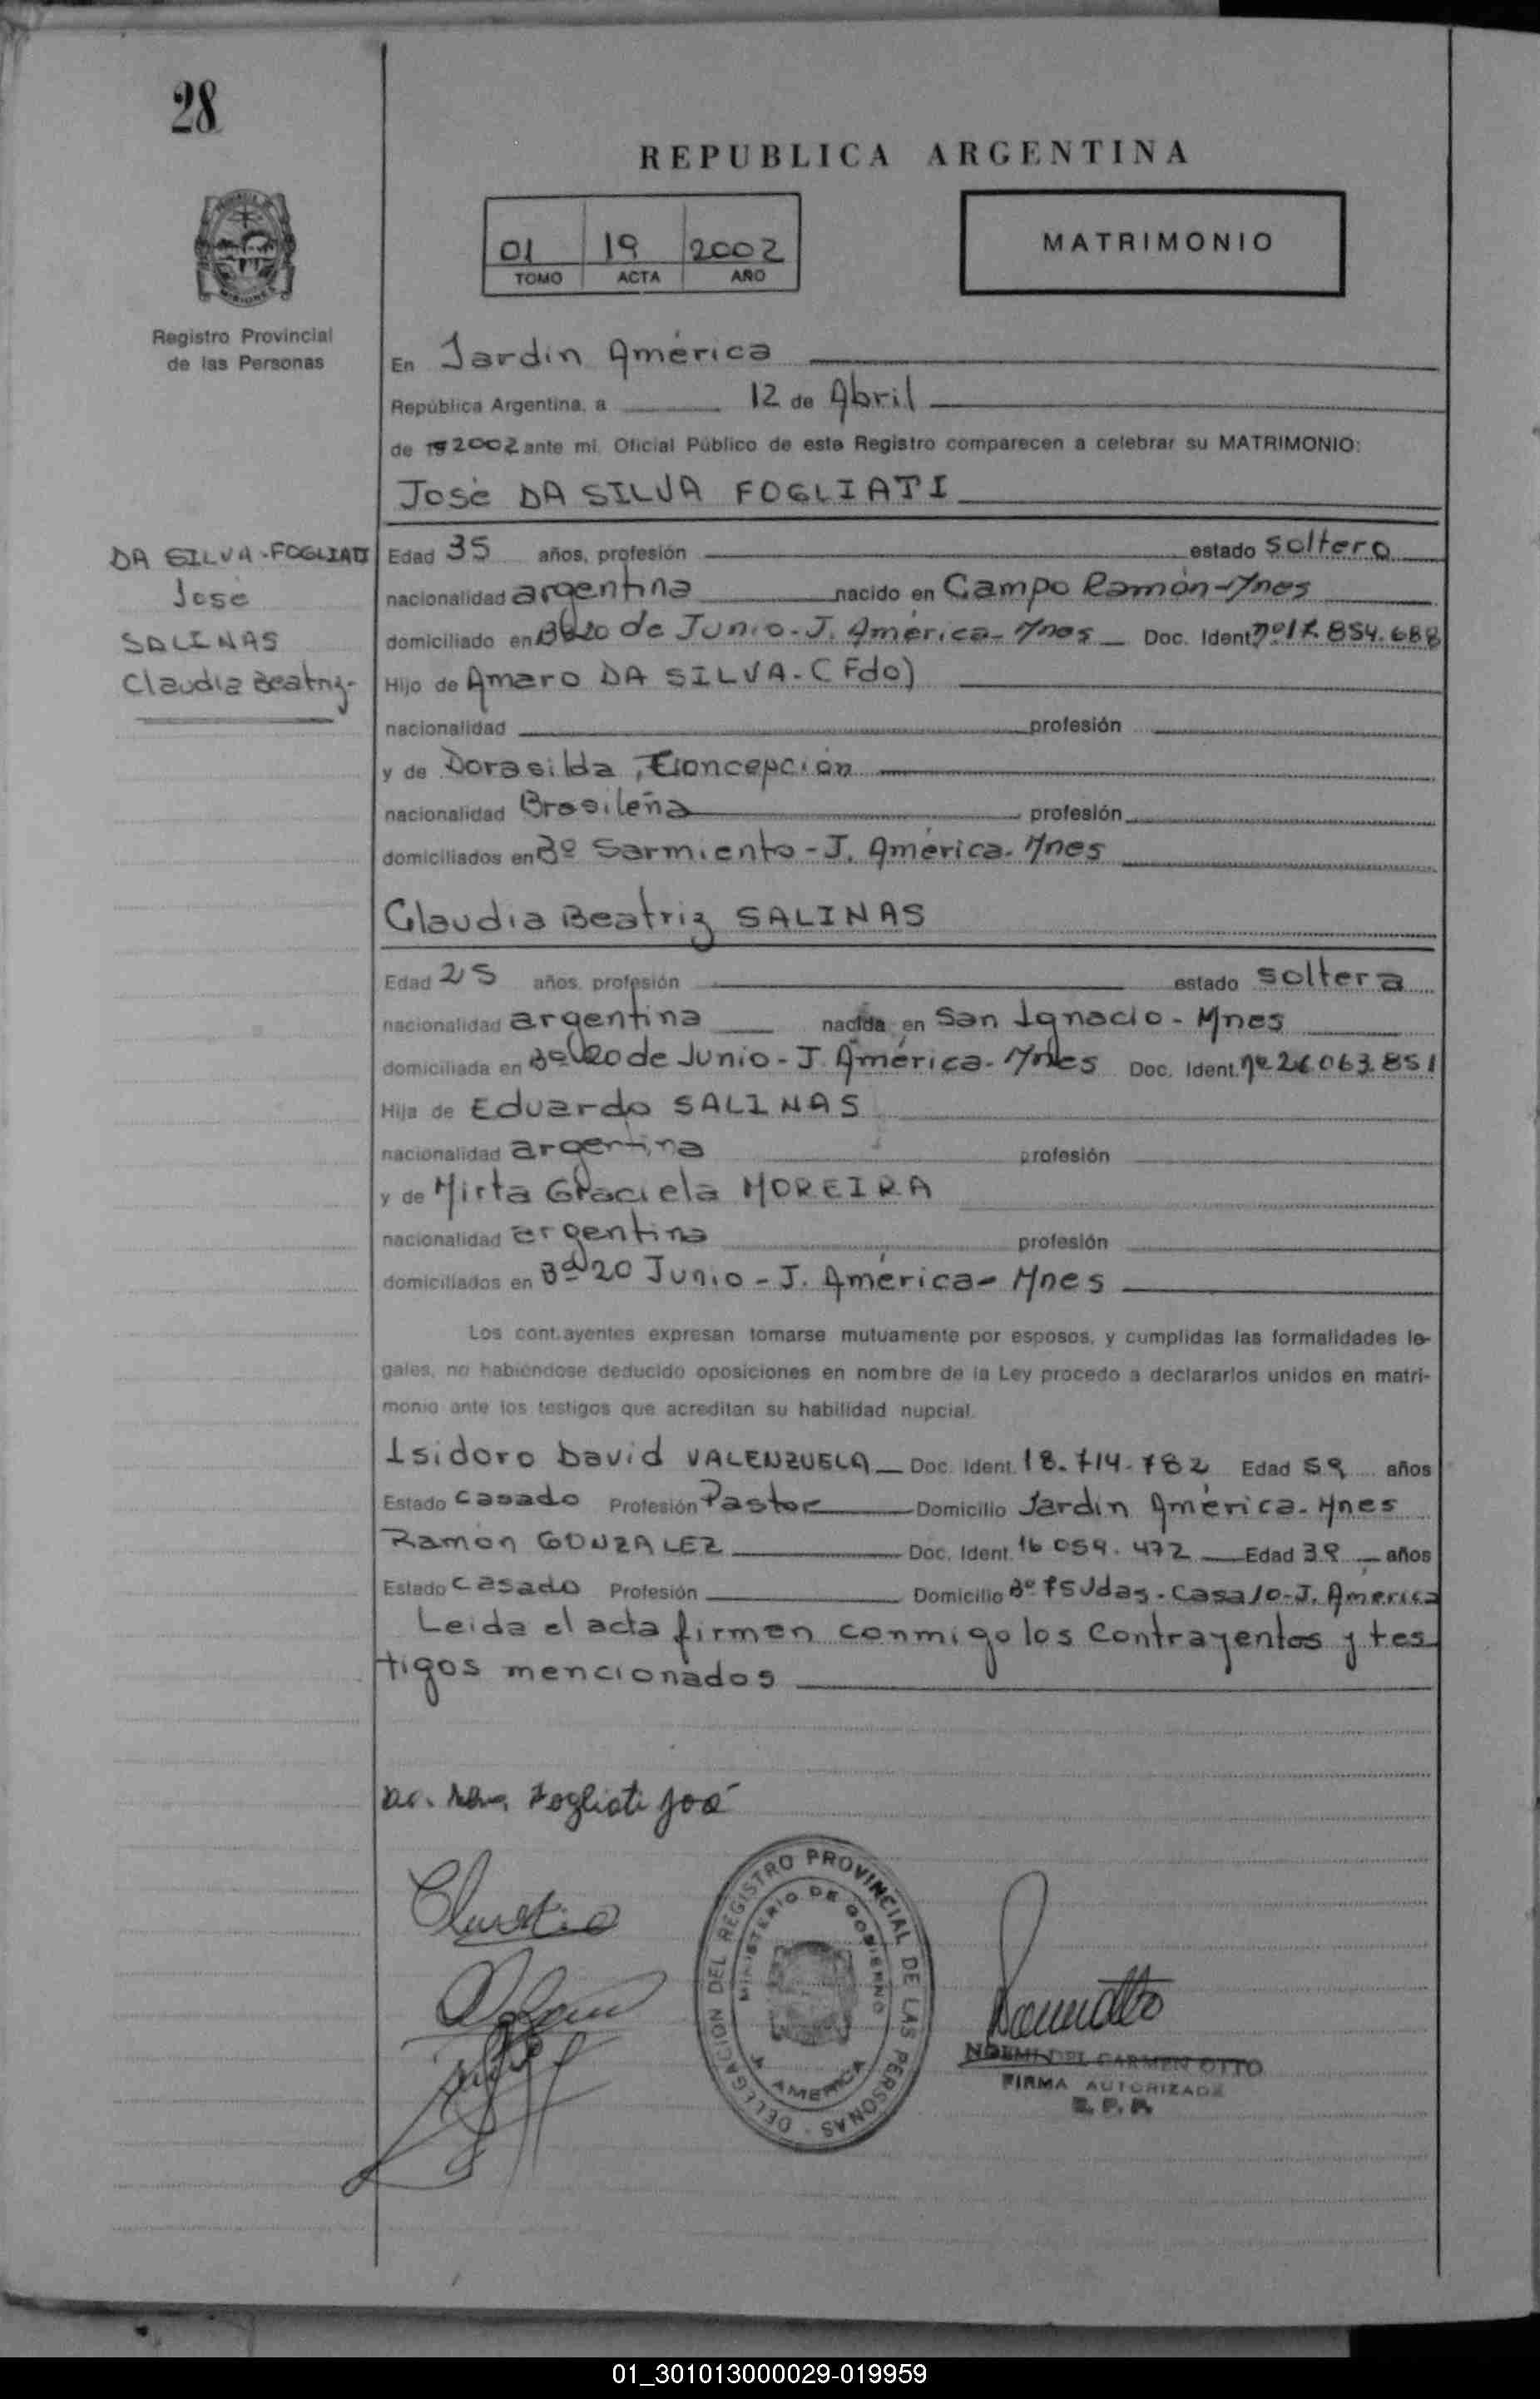 28
REPUBLICA ARGENTINA
01 19 2002
TOMO ACTA AÑO
MATRIMONIO
Registro Provincial
de las Personas
En Jardín América
República Argentina, a 12 de Abril
de 19 2002 ante mi, Oficial Público de este Registro comparecen a celebrar su MATRIMONIO:
José DA SILVA FOGLIATI
DA SILVA-FOGLIATI
José
SALINAS
Claudia Beatriz-
Edad 35 años, profesión estado soltero
nacionalidad argentina nacido en Campo Ramón-Mnes
domiciliado en Bº 20 de Junio-J. América-Mnes Doc. Ident. nº 17.854.688
Hijo de Amaro DA SILVA-(Fdo)
nacionalidad profesión
y de Dorasilda, Concepción
nacionalidad Brasileña profesión
domiciliados en Bº Sarmiento-J. América-Mnes
Claudia Beatriz SALINAS
Edad 25 años, profesión estado soltera
nacionalidad argentina nacida en San Ignacio-Mnes
domiciliada en Bº 20 de Junio-J. América-Mnes Doc. Ident. nº 26.063.851
Hija de Eduardo SALINAS
nacionalidad argentina profesión
y de Mirta Graciela MOREIRA
nacionalidad argentina profesión
domiciliados en Bº 20 Junio-J. América-Mnes
Los contrayentes expresan tomarse mutuamente por esposos, y cumplidas las formalidades le-
gales, no habiéndose deducido oposiciones en nombre de la Ley procedo a declararlos unidos en matri-
monio ante los testigos que acreditan su habilidad nupcial.
Isidoro David VALENZUELA Doc. Ident. 18.714.782 Edad 59 años
Estado casado Profesión Pastor Domicilio Jardín América-Mnes
Ramón GONZALEZ Doc. Ident. 16 059.472 Edad 39 años
Estado casado Profesión Domicilio Bº Casa 10-J. América
Leída el acta firman conmigo los Contrayentes y tes
tigos mencionados
Da Silva Fogliati José
Claudia
DELEGACION DEL REGISTRO PROVINCIAL DE LAS PERSONAS
MINISTERIO DE GOBIERNO
J. AMERICA
NOEMI DEL CARMEN OTTO
FIRMA AUTORIZADA
R. P. P.
01_301013000029-019959